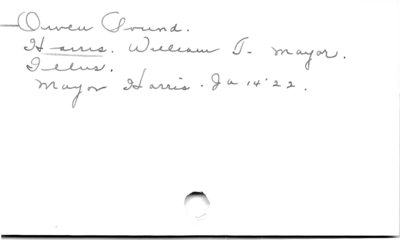 Owen Sound.
Harris. William J. Mayor.
Illus.
Mayor Harris. Ja 14 '22.